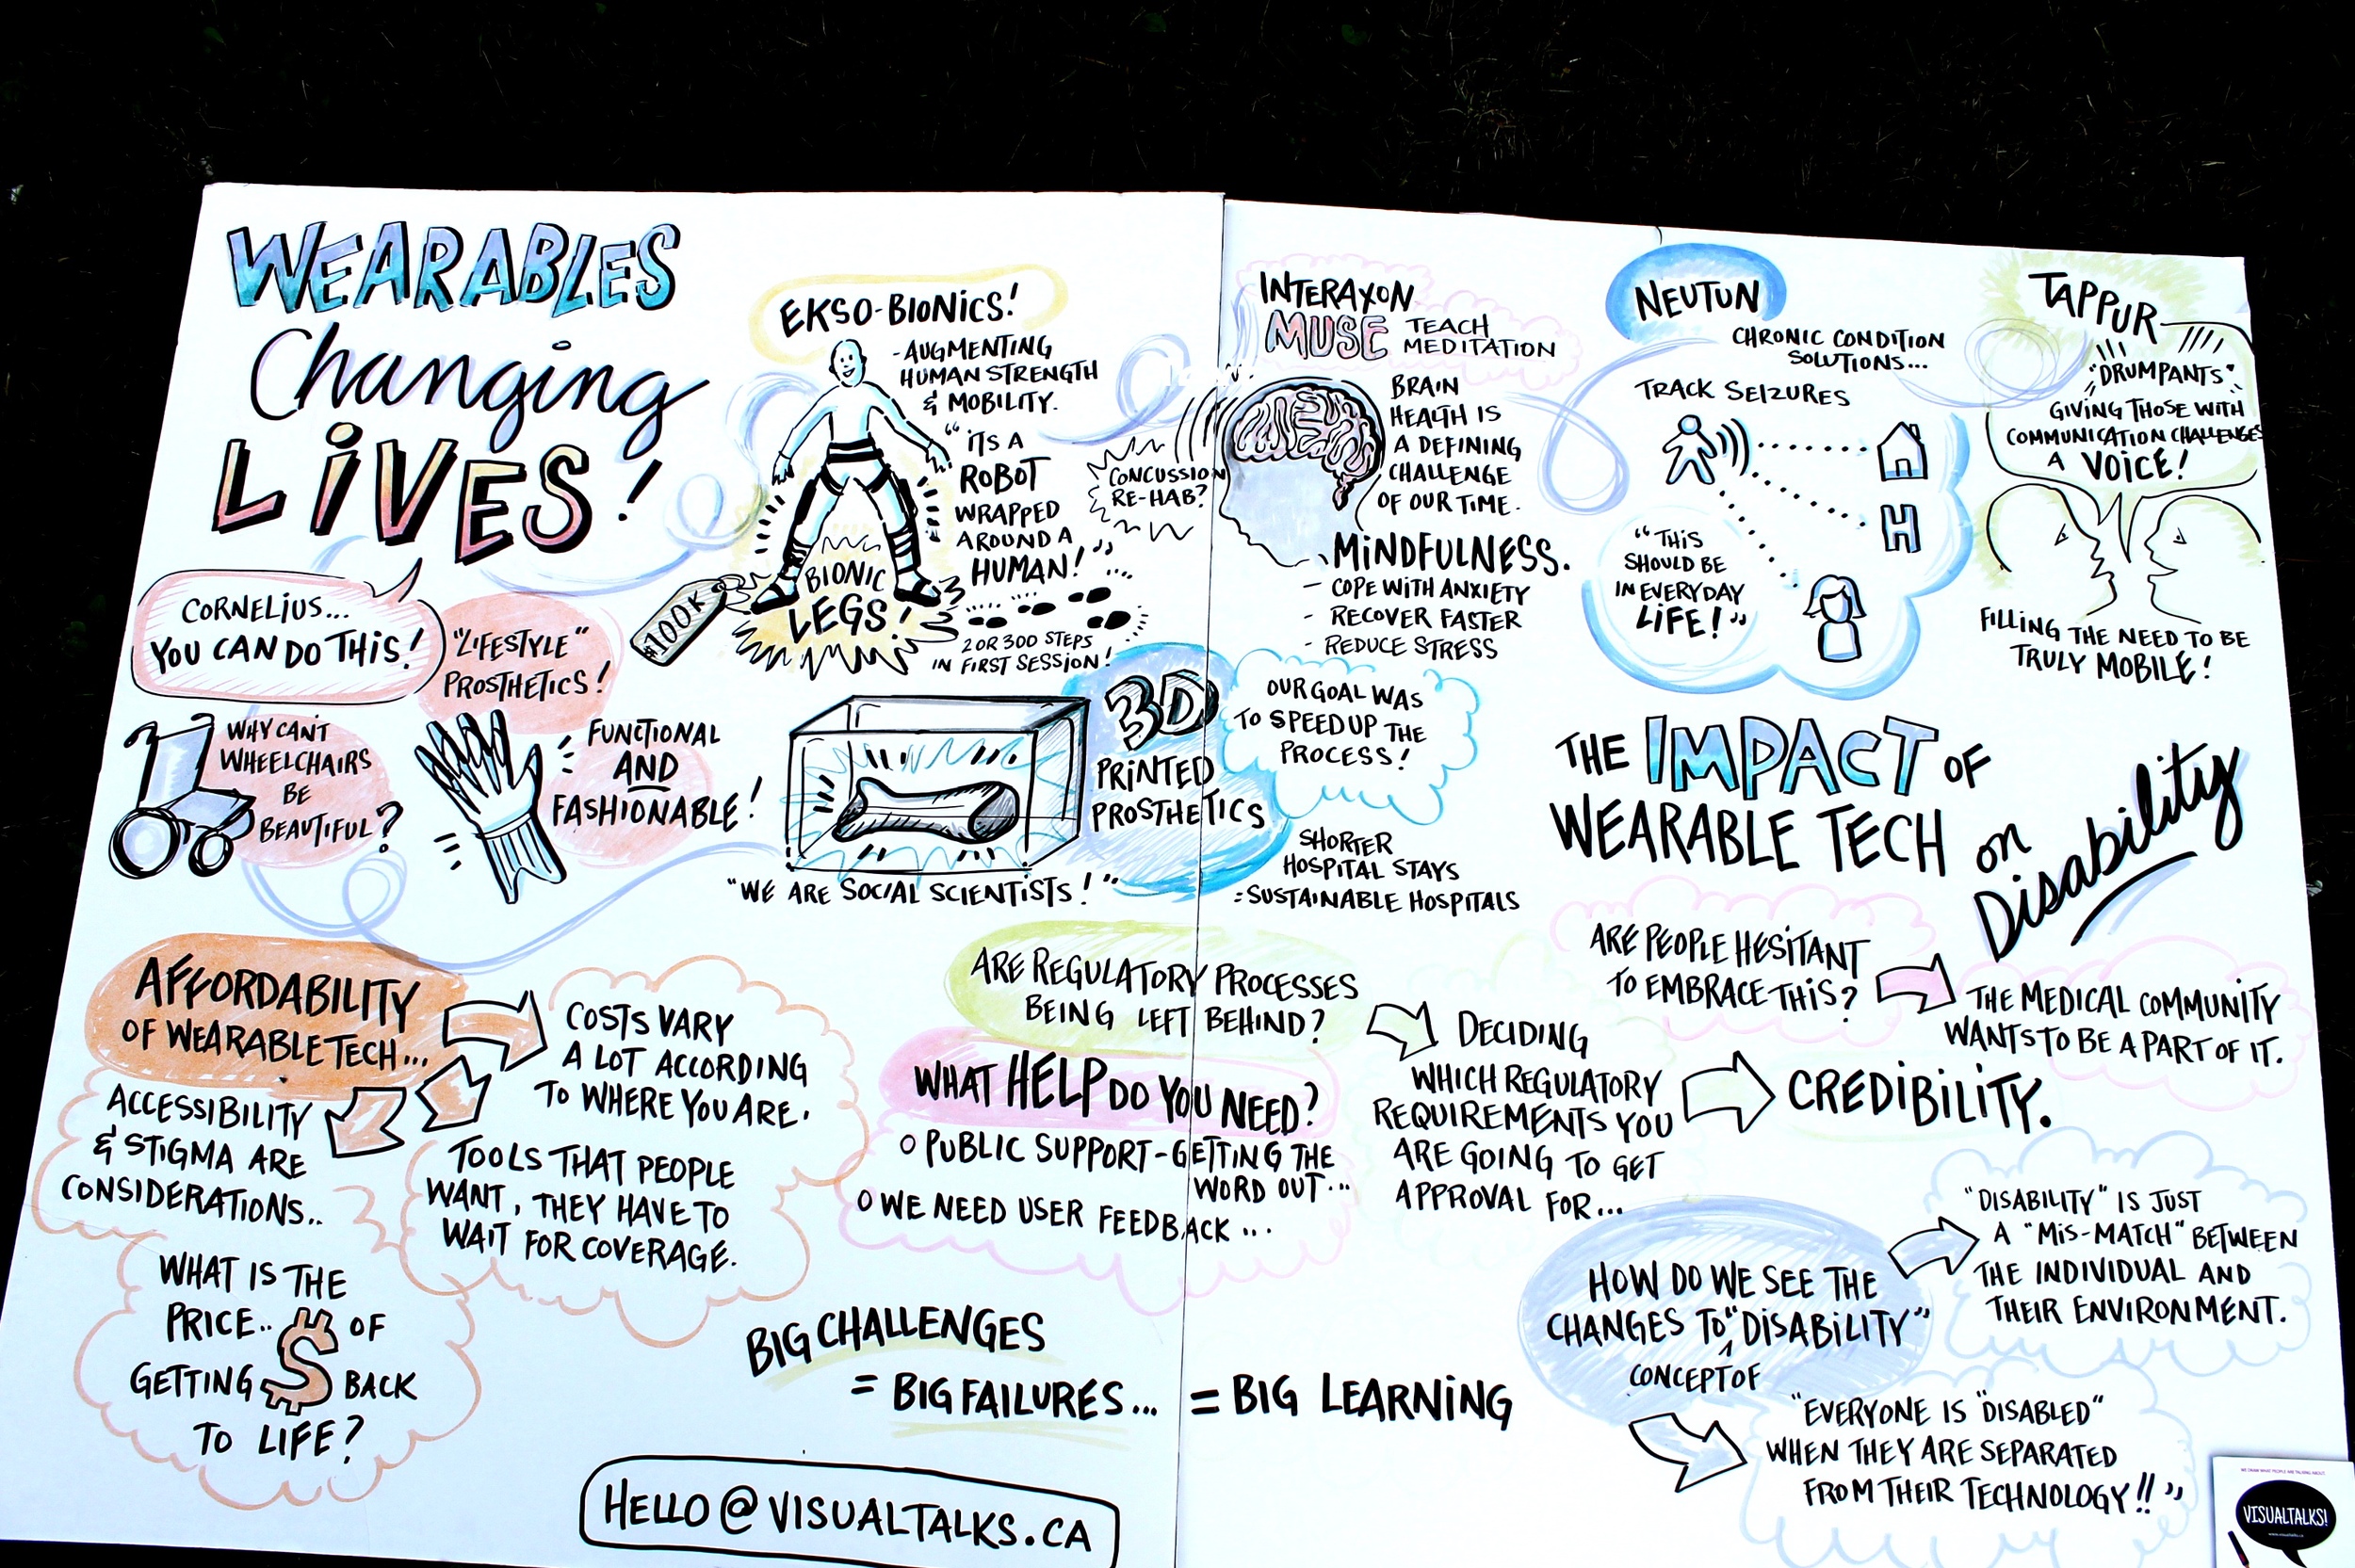 WEARABLES
Changing
LIVES!
CORNELIUS...
YOU CAN DO THIS!
"LIFESTYLE"
PROSTHETICS!
WHY CAN'T
WHEELCHAIRS
BE
BEAUTIFUL?
FUNCTIONAL
AND
FASHIONABLE!
EKSO-BIONICS!
- AUGMENTING
HUMAN STRENGTH
& MOBILITY.
"ITS A
ROBOT
WRAPPED
AROUND A
HUMAN!"
BIONIC
LEGS!
$100K
2 OR 300 STEPS
IN FIRST SESSION!
CONCUSSION
RE-HAB?
INTERAXON
MUSE TEACH
MEDITATION
BRAIN
HEALTH IS
A DEFINING
CHALLENGE
OF OUR TIME.
MINDFULNESS.
- COPE WITH ANXIETY
- RECOVER FASTER
- REDUCE STRESS
NEUTUN
CHRONIC CONDITION
SOLUTIONS...
TRACK SEIZURES
H
"THIS
SHOULD BE
IN EVERYDAY
LIFE!"
TAPPUR
"DRUMPANTS"
GIVING THOSE WITH
COMMUNICATION CHALLENGES
A VOICE!
FILLING THE NEED TO BE
TRULY MOBILE!
3D
PRINTED
PROSTHETICS
OUR GOAL WAS
TO SPEED UP THE
PROCESS!
SHORTER
HOSPITAL STAYS
= SUSTAINABLE HOSPITALS
"WE ARE SOCIAL SCIENTISTS!"
THE IMPACT OF
WEARABLE TECH
on
Disability
AFFORDABILITY
OF WEARABLE TECH...
COSTS VARY
A LOT ACCORDING
TO WHERE YOU ARE.
ACCESSIBILITY
& STIGMA ARE
CONSIDERATIONS..
TOOLS THAT PEOPLE
WANT, THEY HAVE TO
WAIT FOR COVERAGE.
WHAT IS THE
PRICE.. $ OF
GETTING BACK
TO LIFE?
ARE REGULATORY PROCESSES
BEING LEFT BEHIND?
WHAT HELP DO YOU NEED?
O PUBLIC SUPPORT - GETTING THE
WORD OUT...
O WE NEED USER FEEDBACK...
DECIDING
WHICH REGULATORY
REQUIREMENTS YOU
ARE GOING TO GET
APPROVAL FOR...
CREDIBILITY.
ARE PEOPLE HESITANT
TO EMBRACE THIS?
THE MEDICAL COMMUNITY
WANTS TO BE A PART OF IT.
HOW DO WE SEE THE
CHANGES TO "DISABILITY"
CONCEPT OF
"DISABILITY" IS JUST
A "MIS-MATCH" BETWEEN
THE INDIVIDUAL AND
THEIR ENVIRONMENT.
"EVERYONE IS "DISABLED"
WHEN THEY ARE SEPARATED
FROM THEIR TECHNOLOGY!!"
BIG CHALLENGES
= BIG FAILURES... = BIG LEARNING
HELLO@VISUALTALKS.CA
WE DRAW WHAT PEOPLE ARE TALKING ABOUT.
VISUALTALKS!
www.visualtalks.ca